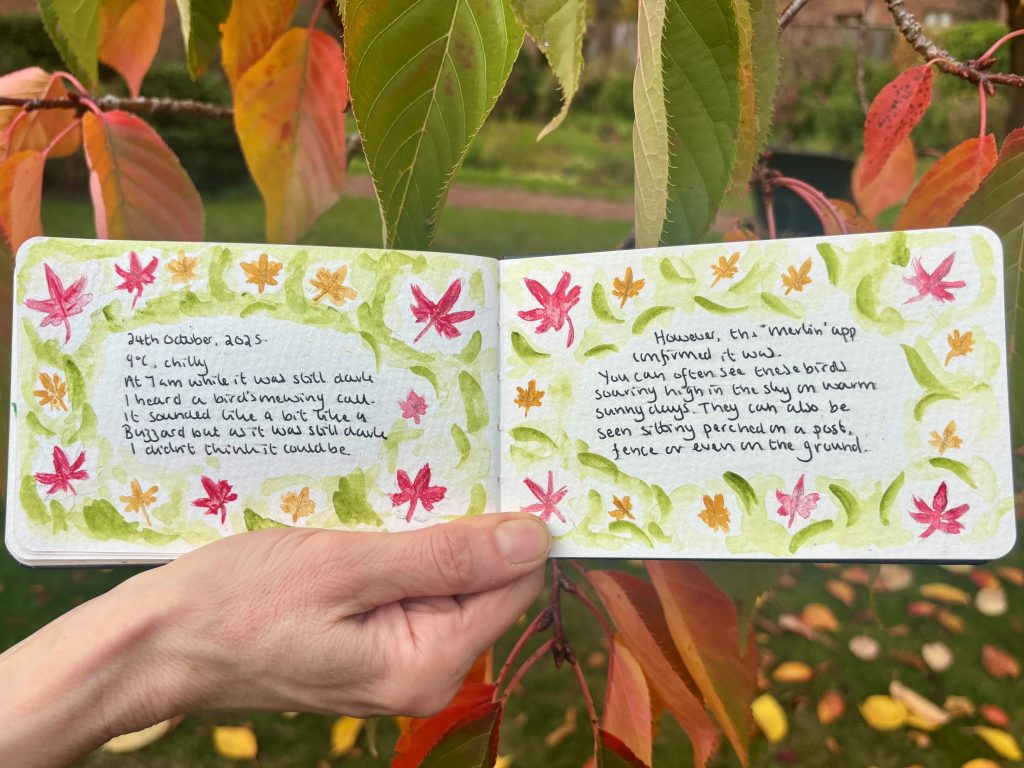 24th October, 2025.
9°C, chilly
At 7am while it was still dark
I heard a bird's mewing call.
It sounded like a bit like a
Buzzard but as it was still dark
I didn't think it could be.
However, the "merlin" app
confirmed it was.
You can often see these birds
soaring high in the sky on warm
sunny days. They can also be
seen sitting perched on a post,
fence or even on the ground.